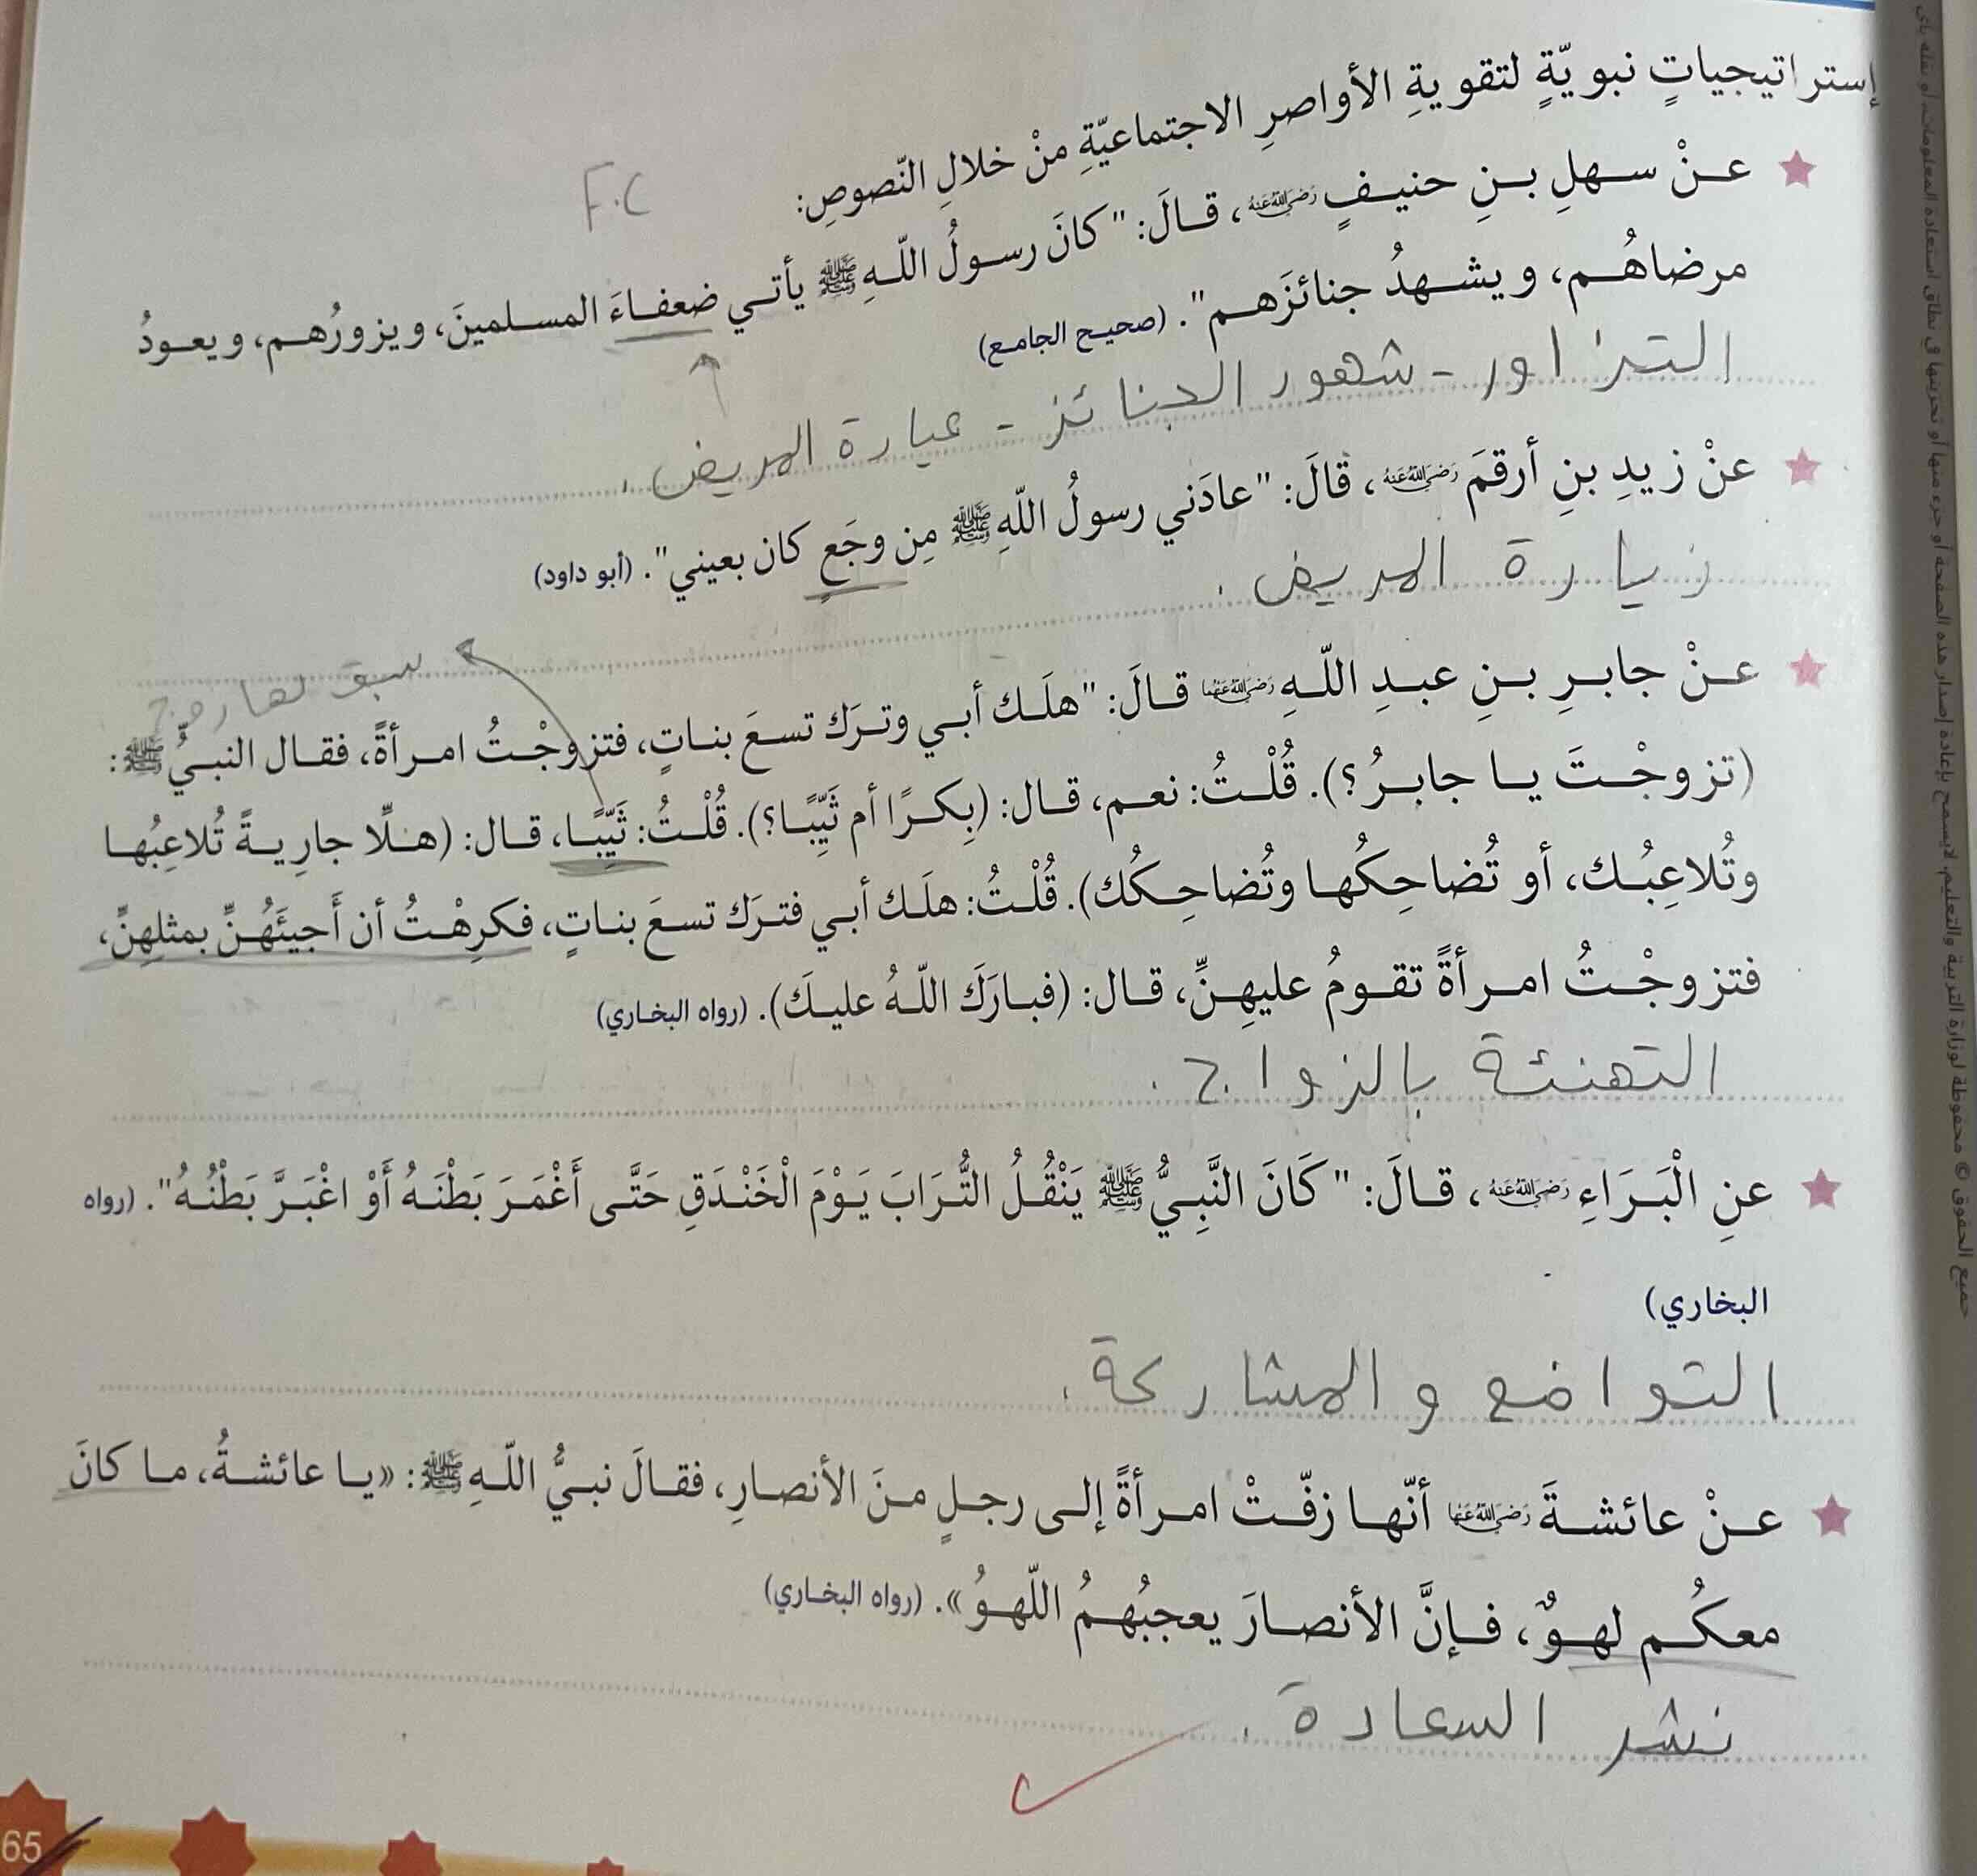 إستراتيجياتٍ نبويّةٍ لتقويةِ الأواصرِ الاجتماعيّةِ منْ خلالِ النّصوصِ:
F.C
عنْ سهلِ بنِ حنيفٍ رضي الله عنه، قالَ: "كانَ رسولُ اللّهِ ﷺ يأتي ضعفاءَ المسلمينَ، ويزورُهم، ويعودُ
مرضاهُم، ويشهدُ جنائزَهم". (صحيح الجامع)
التزاور - شهور الجنائز - عيارة المريض.
عنْ زيدِ بنِ أرقمَ رضي الله عنه، قالَ: "عادَني رسولُ اللّهِ ﷺ مِن وجَعٍ كان بعيني". (أبو داود)
زيارة المريض.
سبق لها
عنْ جابرِ بنِ عبدِ اللّهِ رضي الله عنهما قالَ: "هلَك أبي وترَك تسعَ بناتٍ، فتزوجْتُ امرأةً، فقال النبيُّ ﷺ:
(تزوجْتَ يا جابرُ؟). قُلْتُ: نعم، قال: (بِكرًا أم ثَيِّبًا؟). قُلْتُ: ثَيِّبًا، قال: (هلّا جارِيةً تُلاعِبُها
وتُلاعِبُك، أو تُضاحِكُها وتُضاحِكُك). قُلْتُ: هلَك أبي فترَك تسعَ بناتٍ، فكرِهْتُ أن أَجيئَهُنَّ بمثلهِنَّ،
فتزوجْتُ امرأةً تقومُ عليهِنَّ، قال: (فبارَكَ اللّهُ عليكَ). (رواه البخاري)
التهنئة بالزواج.
عنِ الْبَرَاءِ رضي الله عنه، قالَ: "كَانَ النَّبِيُّ ﷺ يَنْقُلُ التُّرَابَ يَوْمَ الْخَنْدَقِ حَتَّى أَغْمَرَ بَطْنَهُ أَوْ اغْبَرَّ بَطْنُهُ". (رواه
البخاري)
التواضع والمشاركة.
عنْ عائشةَ رضي الله عنها أنّها زفّتْ امرأةً إلى رجلٍ منَ الأنصارِ، فقالَ نبيُّ اللّهِ ﷺ: «يا عائشةُ، ما كانَ
معكُم لهوٌ، فإنَّ الأنصارَ يعجبُهمُ اللّهوُ». (رواه البخاري)
نشر السعادة.
65